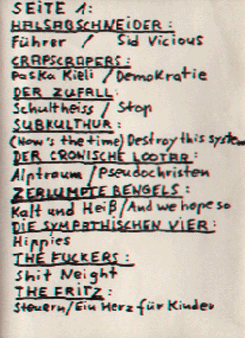 SEITE 1:
HALSABSCHNEIDER:
Führer / Sid Vicious
CRAPSCRAPERS:
Paska Kieli / Demokratie
DER ZUFALL:
Schultheiss / Stop
SUBKULTHUR:
(Now's the time) Destroy this system
DER CRONISCHE LOOTAR:
Alptraum / Pseudochristen
ZERLUMPTE BENGELS:
Kalt und Heiß / And we hope so
DIE SYMPATHISCHEN VIER:
Hippies
THE FUCKERS:
Shit Neight
THE FRITZ:
Steuern / Ein Herz für Kinder